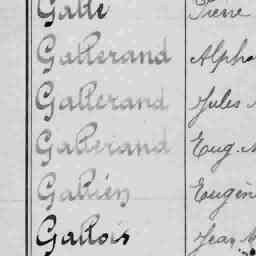 Gallé Pierre
Gallerand Alpho
Gallerand Jules
Gallerand Eug.
Gallien Eugèn
Gallois Jean